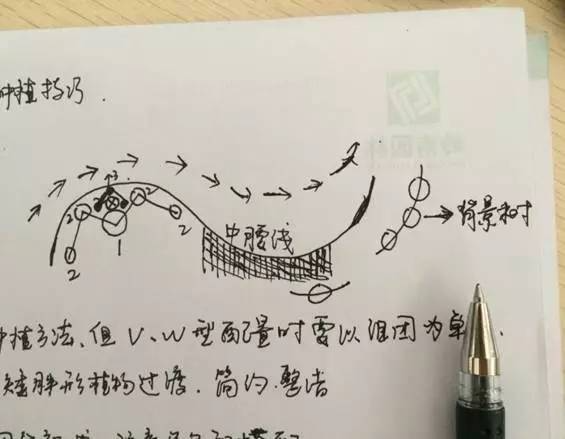 种植技巧.
3
2 2 2
1
2
中腰线
背景树
种植方法、但V、W型配置时需以组团为单
矮胖形植物过渡.简约.整洁